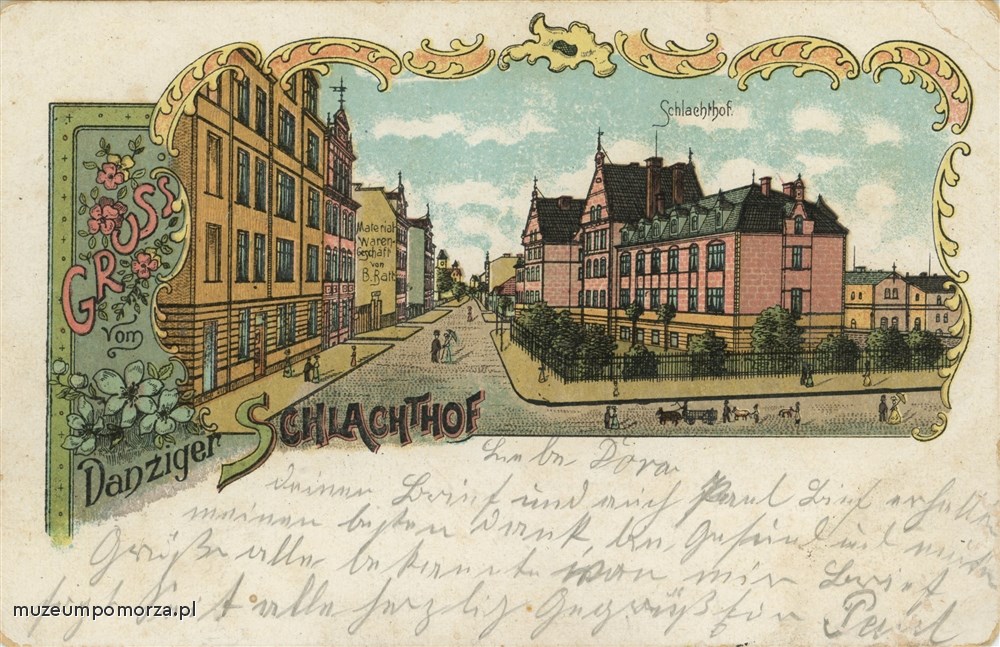 Schlachthof.
GRUSS
vom
Danziger SCHLACHTHOF
Material-
Waren-
Geschäft
von
B. Ratt
Liebe Dora
deinen Brief und auch Paul Brief erhalten
meinen besten Dank, bin Gesund und
Grüße alle bekannte von mir Brief
Seit alle herzlig Gegrüßt
Paul
muzeumpomorza.pl